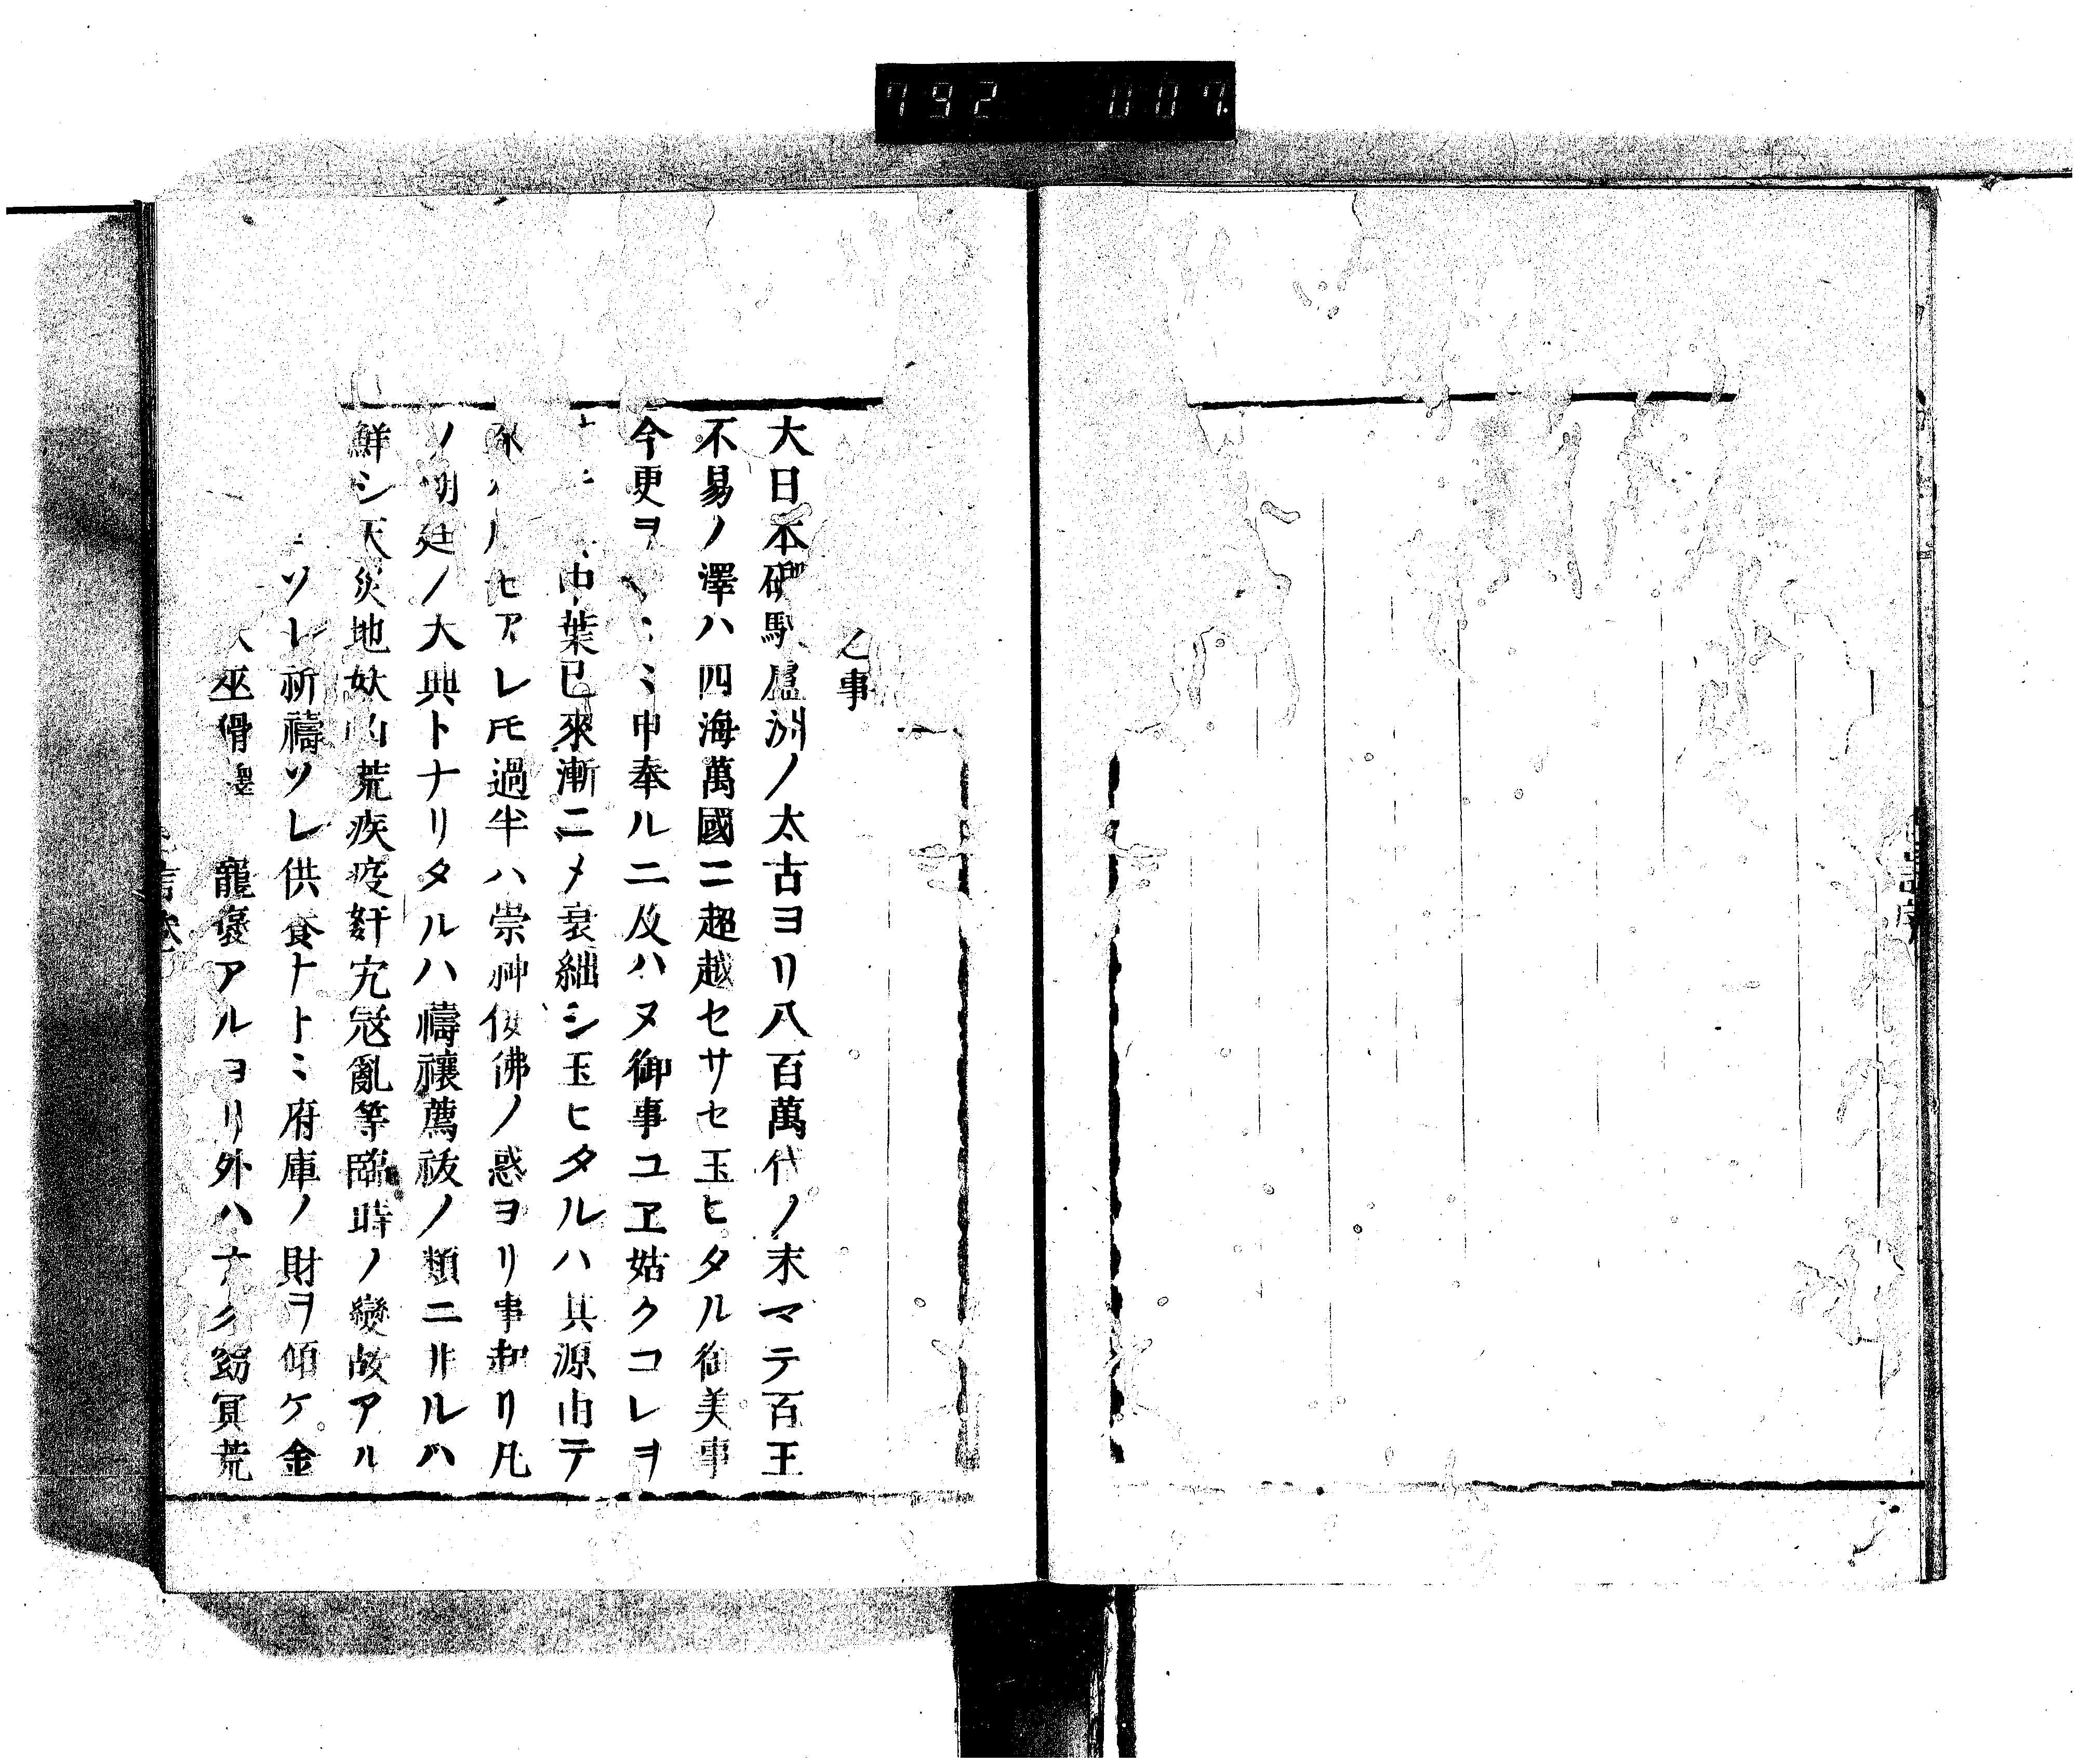 792 007
之事
大日本磤馭盧洲ノ太古ヨリ八百萬代ノ末マテ百王
不易ノ澤ハ四海萬國ニ超越セサセ玉ヒタル御美事
今更ヲ ミ申奉ルニ及ハヌ御事ユヱ姑クコレヲ
中葉已來漸ニメ衰絀シ玉ヒタルハ其源由テ
ル アレ𪜈過半ハ崇神佞佛ノ惑ヨリ事起リ凡
ノ朝廷ノ大典トナリタルハ禱禳薦祓ノ類ニ非ルハ
鮮シ天災地妖凶荒疾疫姧宄冦亂等臨時ノ變故アル
ソレ祈禱ソレ供養ナトヽ府庫ノ財ヲ傾ケ金
巫 寵褒アルヨリ外ハナク 冥荒